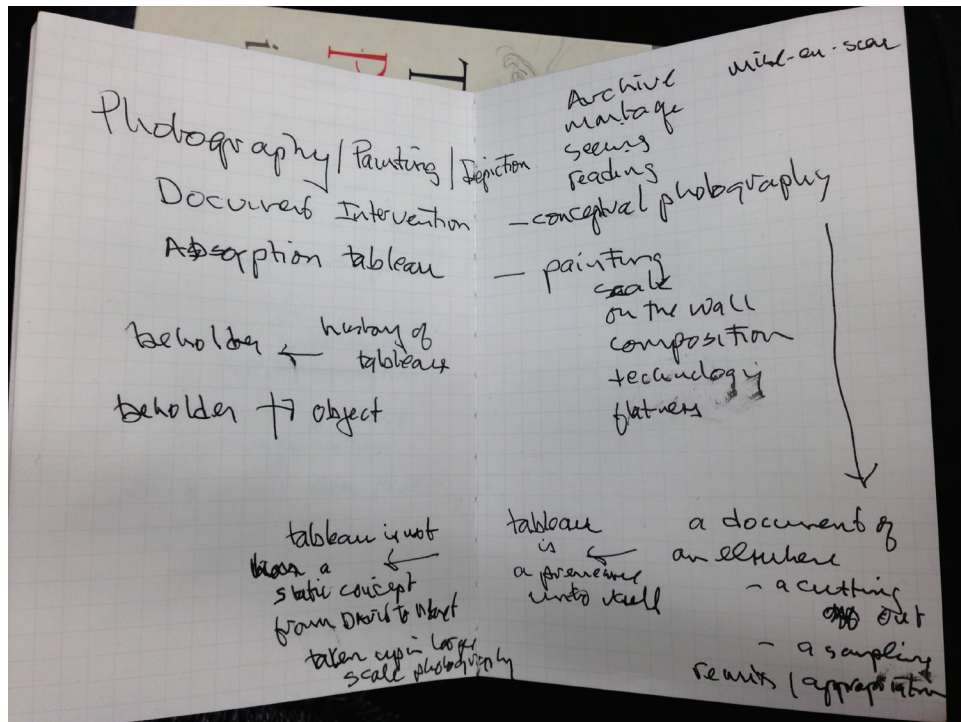 Photography / Painting / Depiction
Document Intervention
Absorption tableau
beholder ← history of
tableaux
beholder object
tableau is not
a
static concept
from David to Manet
taken up in larger
scale photography
mise-en-scen
Archive
montage
seeing
reading
– conceptual photography
– painting
scale
on the wall
composition
technology
flatness
tableau
is ←
a
unto itself
a document of
an elsewhere
- a cutting
out
- a sampling
/ appropriation